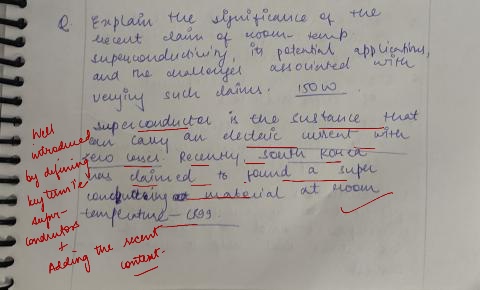 Q. Explain the significance of the
recent claim of room-temp
superconductivity, its potential applications,
and the challenges associated with
verying such claims. 150W
superconductor is the sustance that
can carry an electric current with
zero loses. Recently, south korea
has claimed to found a super
conducting material at room
temperature - LK99.
Well
introduced
by defining
key term i.e
super-
conductors
+
Adding the recent
context.